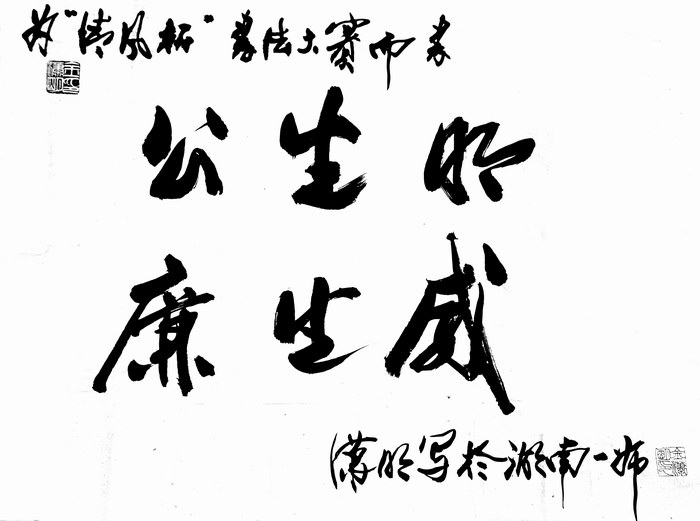 为“清风杯”书法大赛而书
公生明
廉生威
明写於湖南一师